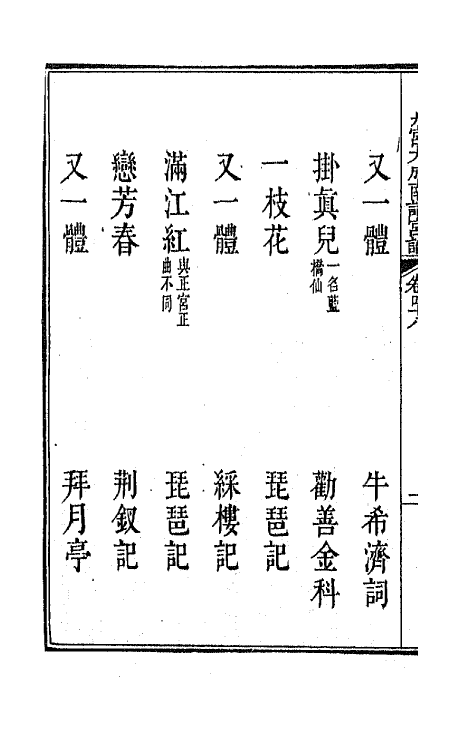 九宮大成南詞宮譜 卷四十八 二
又一體 牛希濟詞
掛真兒 一名藍橋仙 勸善金科
一枝花 琵琶記
又一體 綵樓記
滿江紅 與正宮正曲不同 琵琶記
戀芳春 荆釵記
又一體 拜月亭